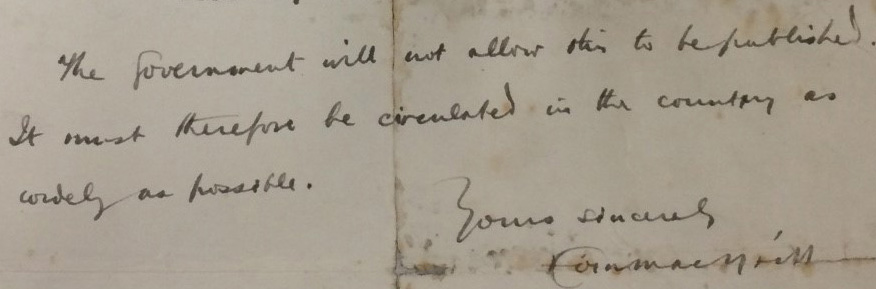 The Government will not allow this to be published.
It must therefore be circulated in the country as
widely as possible.
Yours sincerely
Eoin MacNéill